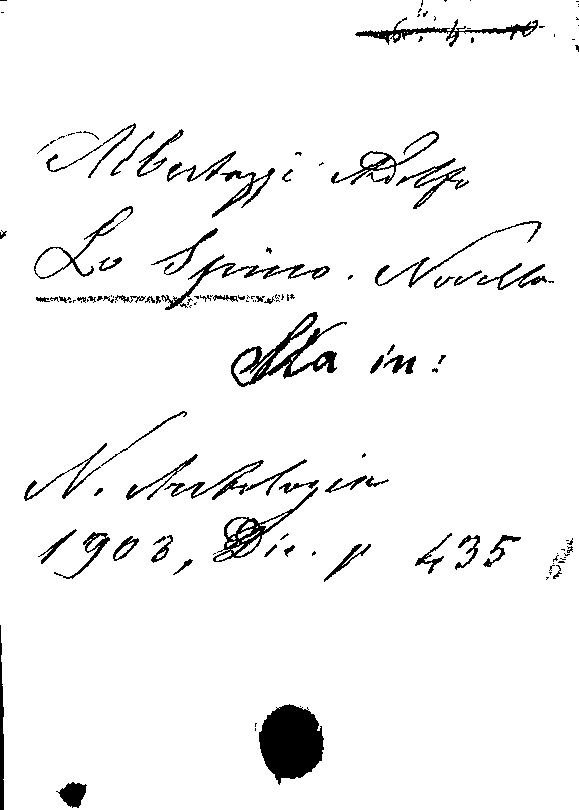 6. 4. 10
Albertazzi Adolfo
Lo Spino. Novella
Sta in:
N. Antologia
1903, Dic. p 435